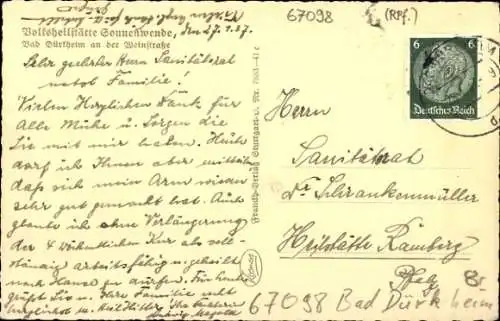 67098 (Rpf.)
Volksheilstätte Sonnenwende, den 27.1.37.
Bad Dürkheim an der Weinstraße
Sehr geehrter Herr Sanitätsrat
nebst Familie!
Vielen Herzlichen Dank für
Alle Mühe u. Sorgen die
Sie mit mir haben. Heute
darf ich Ihnen aber mitteilen
daß sich mein Arm wieder
sehr gut gemacht hat. Auch
glaube ich ohne Verlängerung
der 4 wöchentlichen Kur als voll-
ständig arbeitsfähig u. geheilt
nach Hause zu dürfen. Für heute
grüßt Sie u. Ihre Familie
Franckh-Verlag Stuttgart-O. Nr.
6 6
Deutsches Reich
Herrn
Sanitätsrat
Dr. Schrankenmüller
Heilstätte Ramberg
Pfalz
67098 Bad Dürkheim